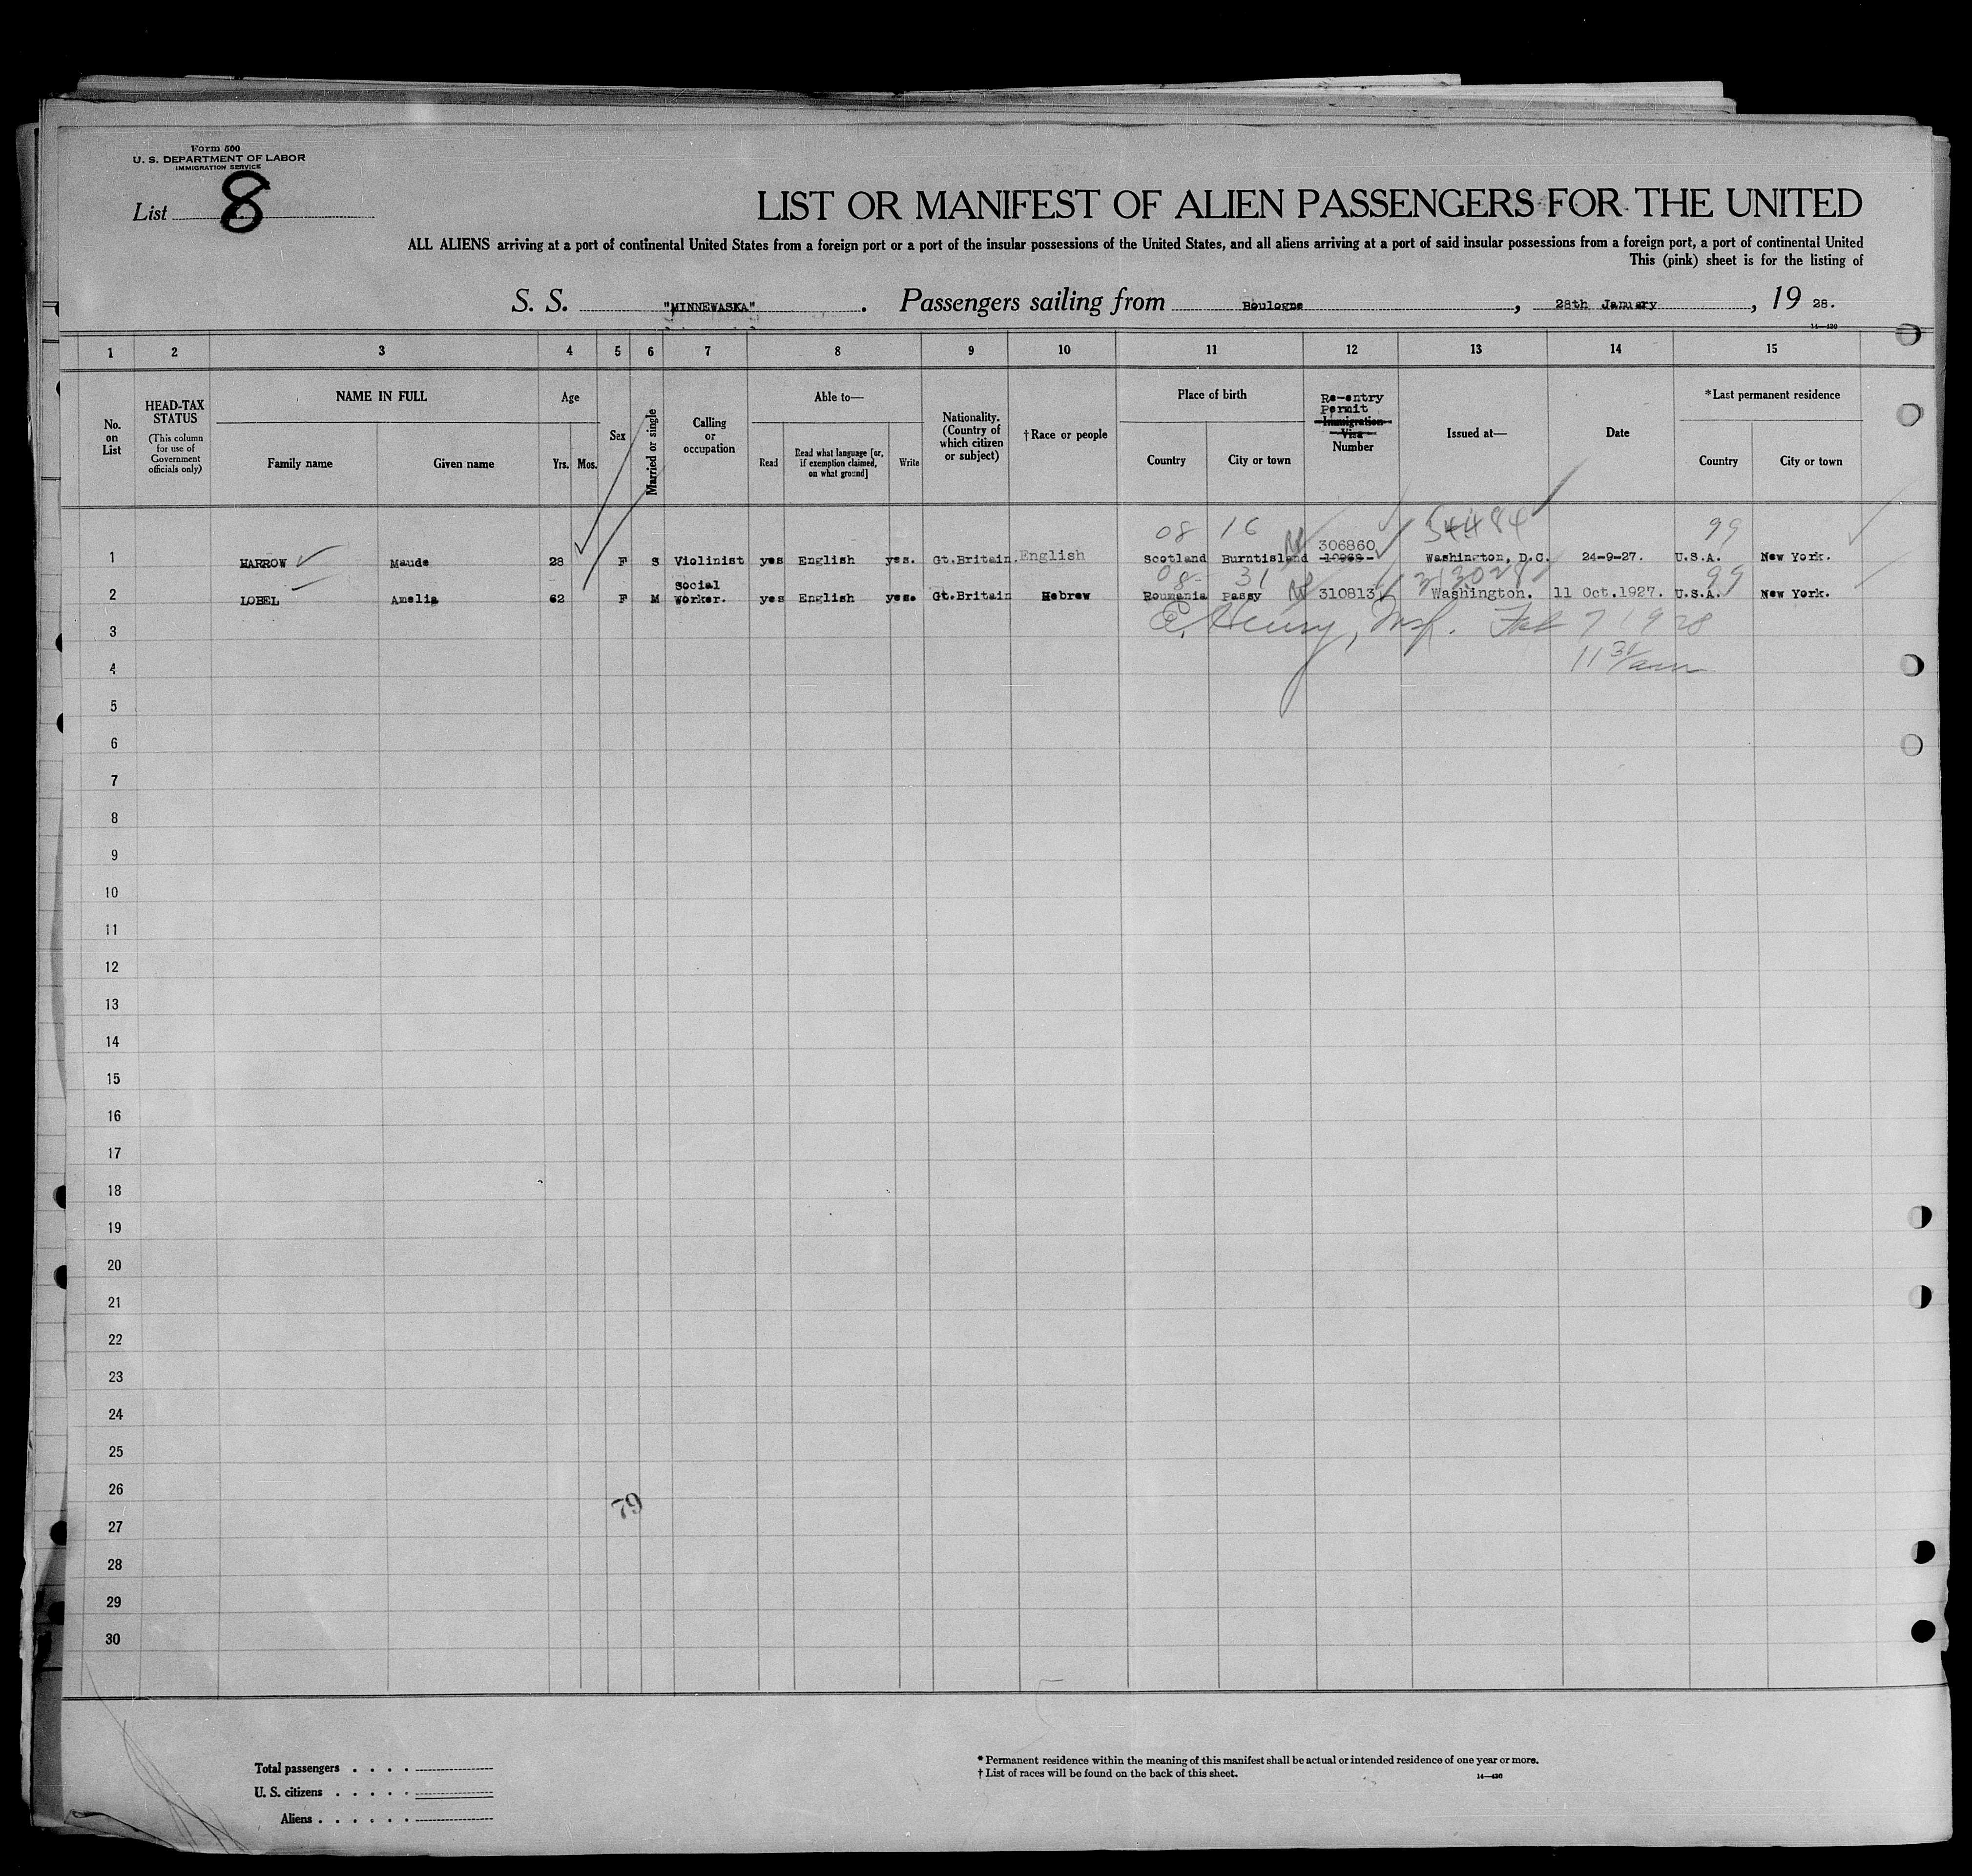 Form 500
U. S. DEPARTMENT OF LABOR
IMMIGRATION SERVICE
List 8
LIST OR MANIFEST OF ALIEN PASSENGERS FOR THE UNITED
ALL ALIENS arriving at a port of continental United States from a foreign port or a port of the insular possessions of the United States, and all aliens arriving at a port of said insular possessions from a foreign port, a port of continental United
This (pink) sheet is for the listing of
S. S. "MINNEWASKA". Passengers sailing from Boulogne, 28th January, 19 28.
14—430
1 2 3 4 5 6 7 8 9 10 11 12 13 14 15
No. on List
HEAD-TAX STATUS
(This column for use of Government officials only)
NAME IN FULL
Family name
Given name
Age
Yrs. Mos.
Sex
Married or single
Calling or occupation
Able to—
Read
Read what language [or, if exemption claimed, on what ground]
Write
Nationality. (Country of which citizen or subject)
†Race or people
Place of birth
Country
City or town
Re-entry Permit
Immigration Visa
Number
Issued at—
Date
*Last permanent residence
Country
City or town
08 16 54484 99
306860
1 HARROW Maude 28 F S Violinist yes English yes. Gt.Britain. English Scotland Burntisland 10968 Washington, D.C. 24-9-27. U.S.A. New York.
08 31 99
2 LOBEL Amelia 62 F M Social Worker. yes English yes. Gt.Britain Hebrew Roumania Passy 310813 Washington. 11 Oct.1927. U.S.A. New York.
E. Henry, Insp. Feb 7 1928
3
4
5
6
7
8
9
10
11
12
13
14
15
16
17
18
19
20
21
22
23
24
25
26
79
27
28
29
30
Total passengers . . . .
U. S. citizens . . . . .
Aliens . . . . . .
* Permanent residence within the meaning of this manifest shall be actual or intended residence of one year or more.
† List of races will be found on the back of this sheet.
14—430